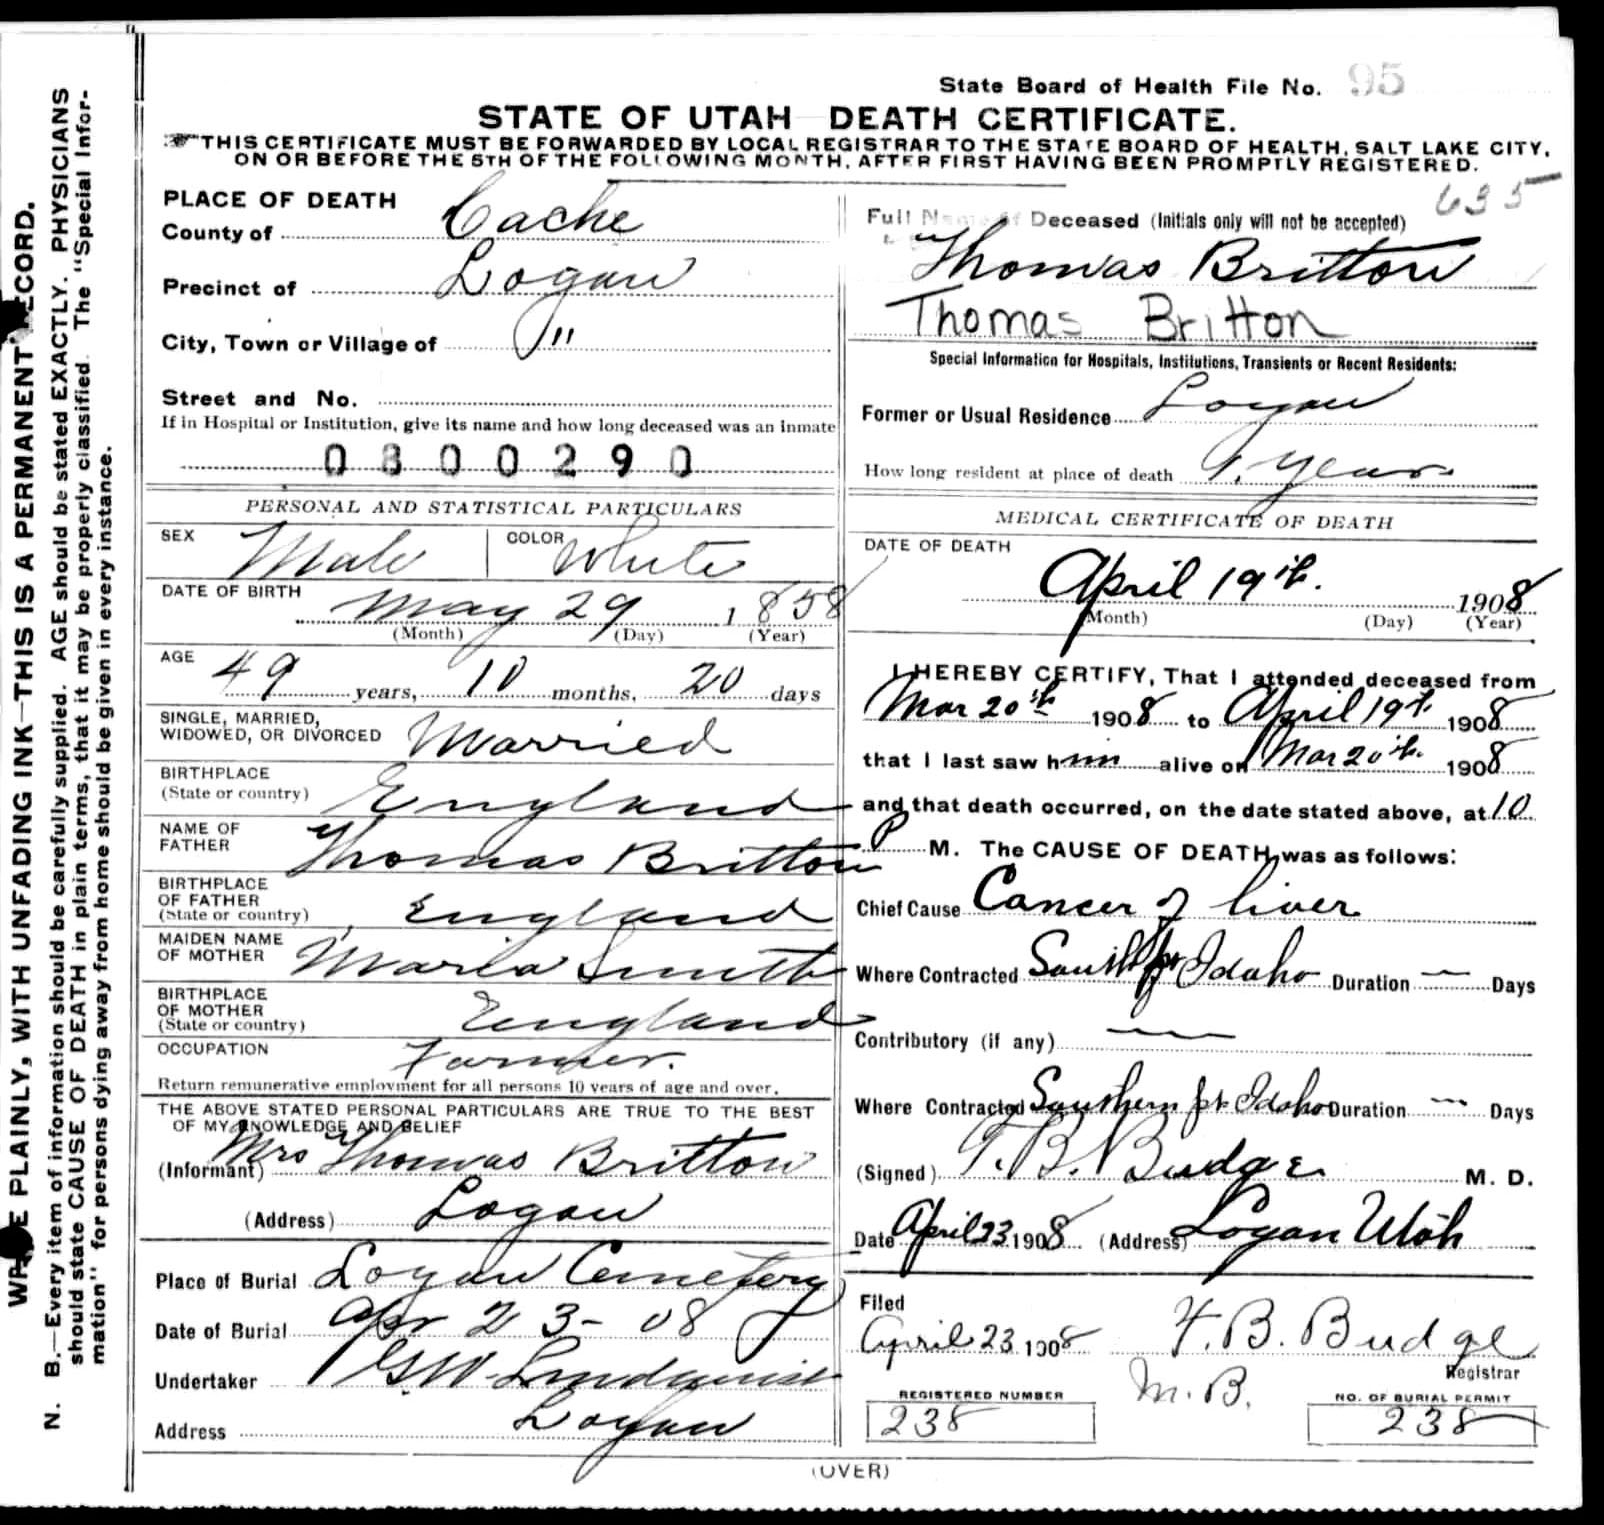 State Board of Health File No. 95
STATE OF UTAH DEATH CERTIFICATE.
THIS CERTIFICATE MUST BE FORWARDED BY LOCAL REGISTRAR TO THE STATE BOARD OF HEALTH, SALT LAKE CITY,
ON OR BEFORE THE 5TH OF THE FOLLOWING MONTH, AFTER FIRST HAVING BEEN PROMPTLY REGISTERED.
PLACE OF DEATH
County of Cache
Precinct of Logan
City, Town or Village of "
Street and No.
If in Hospital or Institution, give its name and how long deceased was an inmate
0 8 0 0 2 9 0
PERSONAL AND STATISTICAL PARTICULARS
SEX Male COLOR White
DATE OF BIRTH May 29 1858
(Month) (Day) (Year)
AGE 49 years, 10 months, 20 days
SINGLE, MARRIED,
WIDOWED, OR DIVORCED Married
BIRTHPLACE
(State or country) England
NAME OF
FATHER Thomas Britton
BIRTHPLACE
OF FATHER
(State or country) England
MAIDEN NAME
OF MOTHER Maria Smith
BIRTHPLACE
OF MOTHER
(State or country) England
OCCUPATION Farmer.
Return remunerative employment for all persons 10 years of age and over.
THE ABOVE STATED PERSONAL PARTICULARS ARE TRUE TO THE BEST
OF MY KNOWLEDGE AND BELIEF
(Informant) Mrs Thomas Britton
(Address) Logan
Place of Burial Logan Cemetery
Date of Burial Apr 23-08
Undertaker GW Lindquist
Address Logan
635
Full Name of Deceased (Initials only will not be accepted)
Thomas Britton
Thomas Britton
Special Information for Hospitals, Institutions, Transients or Recent Residents:
Former or Usual Residence Logan
How long resident at place of death 9 years
MEDICAL CERTIFICATE OF DEATH
DATE OF DEATH
April 19th. 1908
(Month) (Day) (Year)
I HEREBY CERTIFY, That I attended deceased from
Mar 20th 1908 to April 19th. 1908
that I last saw him alive on Mar 20th. 1908
and that death occurred, on the date stated above, at 10
P M. The CAUSE OF DEATH was as follows:
Chief Cause Cancer of liver
Where Contracted South pt Idaho Duration — Days
Contributory (if any) —
Where Contracted Southern pt Idaho Duration — Days
(Signed) T. B. Budge M. D.
Date April 23 1908 (Address) Logan Utah
Filed
April 23 1908 T. B. Budge
Registrar
M. B.
REGISTERED NUMBER
238
NO. OF BURIAL PERMIT
238
(OVER)
WRITE PLAINLY, WITH UNFADING INK—THIS IS A PERMANENT RECORD.
N. B.—Every item of information should be carefully supplied. AGE should be stated EXACTLY. PHYSICIANS
should state CAUSE OF DEATH in plain terms, that it may be properly classified. The "Special Infor-
mation" for persons dying away from home should be given in every instance.